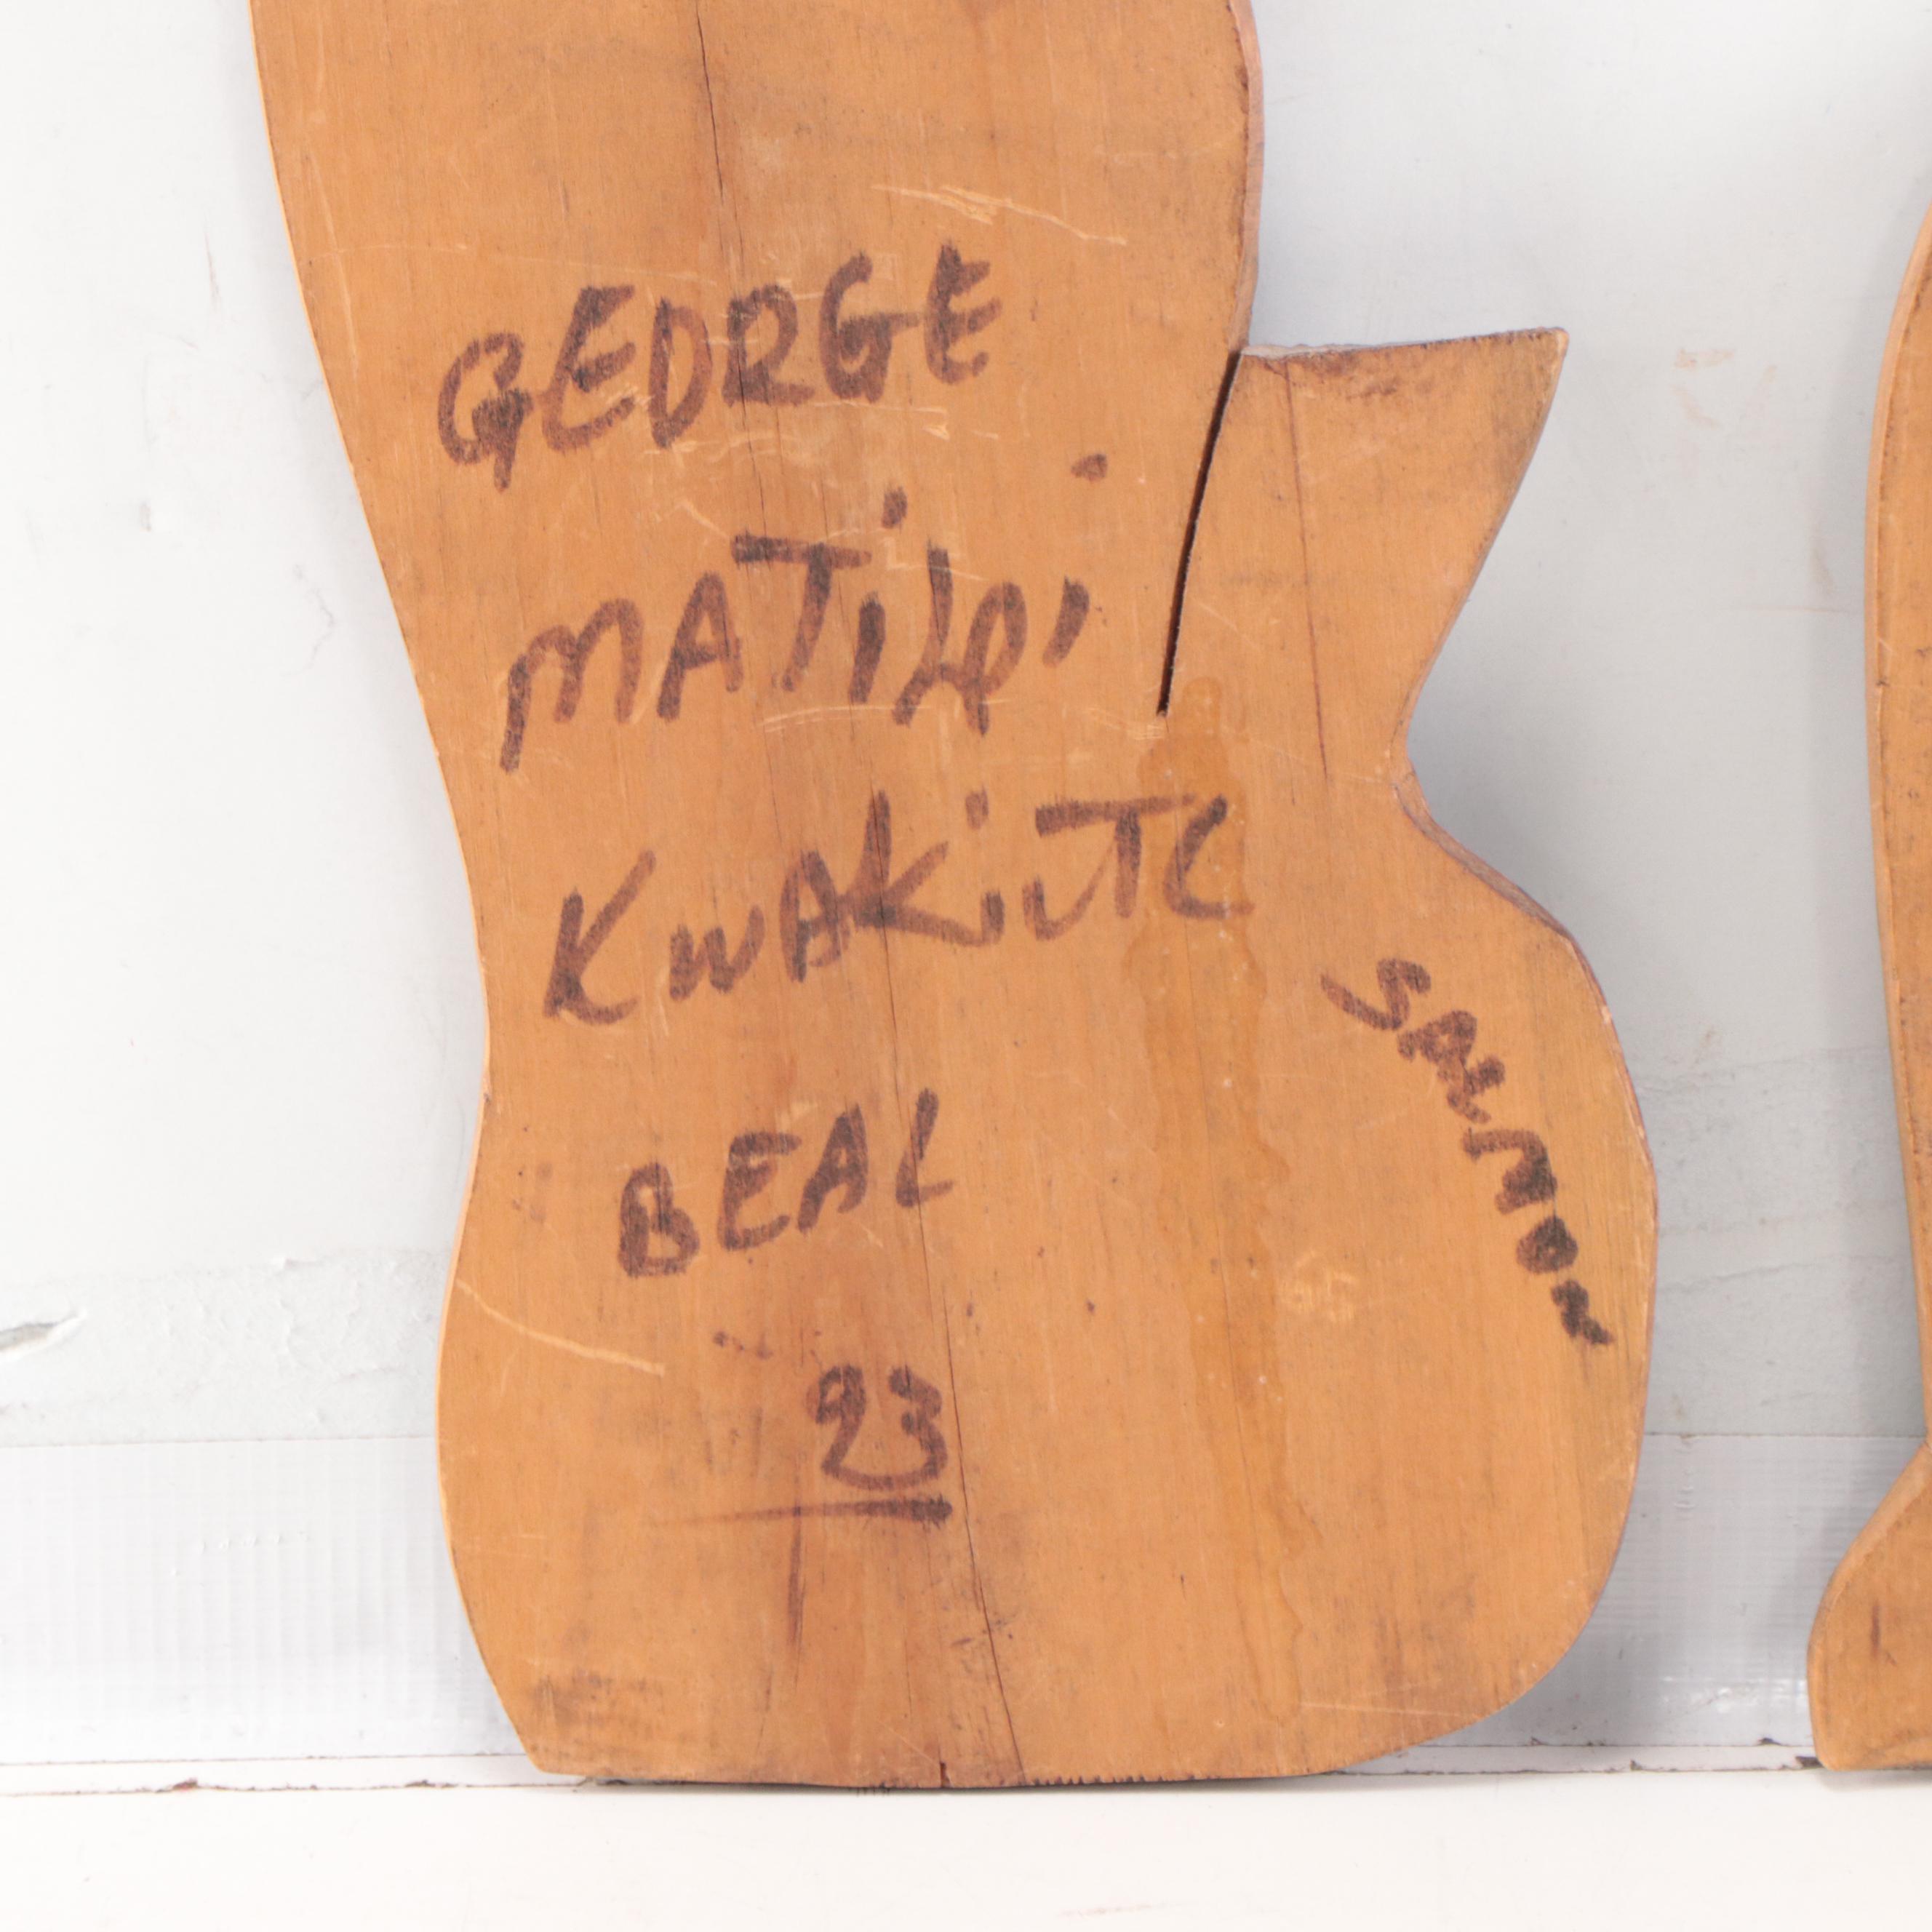 GEORGE
MATiLpi
KWAKiUTL
BEAL
93
SALMON